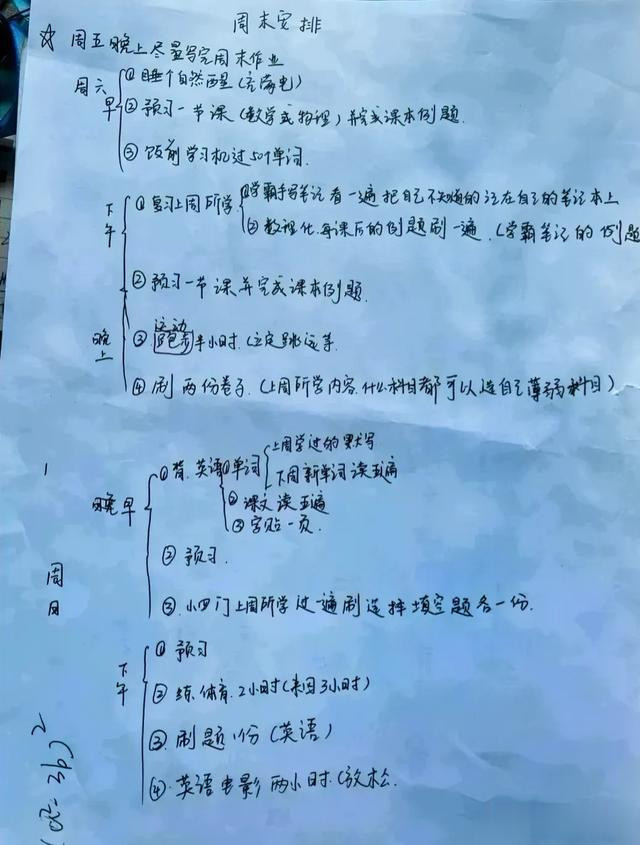 周末安排
☆ 周五晚上尽量写完周末作业
周六
早
① 睡个自然醒(充满电)
② 预习一节课(数学或物理)并完成课本例题.
③ 饭前学习机过50个单词.
下午
① 复习上周所学
①学霸手写笔记看一遍把自己不知道的记在自己的笔记本上
② 数理化.每课后的例题刷一遍.(学霸笔记的例题
② 预习一节课并完成课本例题.
晚上
③ 运动
跑步半小时.立定跳远等.
④ 刷两份卷子.(上周所学内容.什么科目都可以选自己薄弱科目)
周日
晚早
① 背.英语
①单词
上周学过的要默写
下周新单词读五遍
② 课文读五遍
③ 字贴一页.
② 预习.
③.小四门上周所学过一遍刷选择填空题各一份.
下午
① 预习
② 练.体育.2小时(来回3小时)
③.刷题1份(英语)
④.英语电影两小时.(放松.
(a²-3b)²